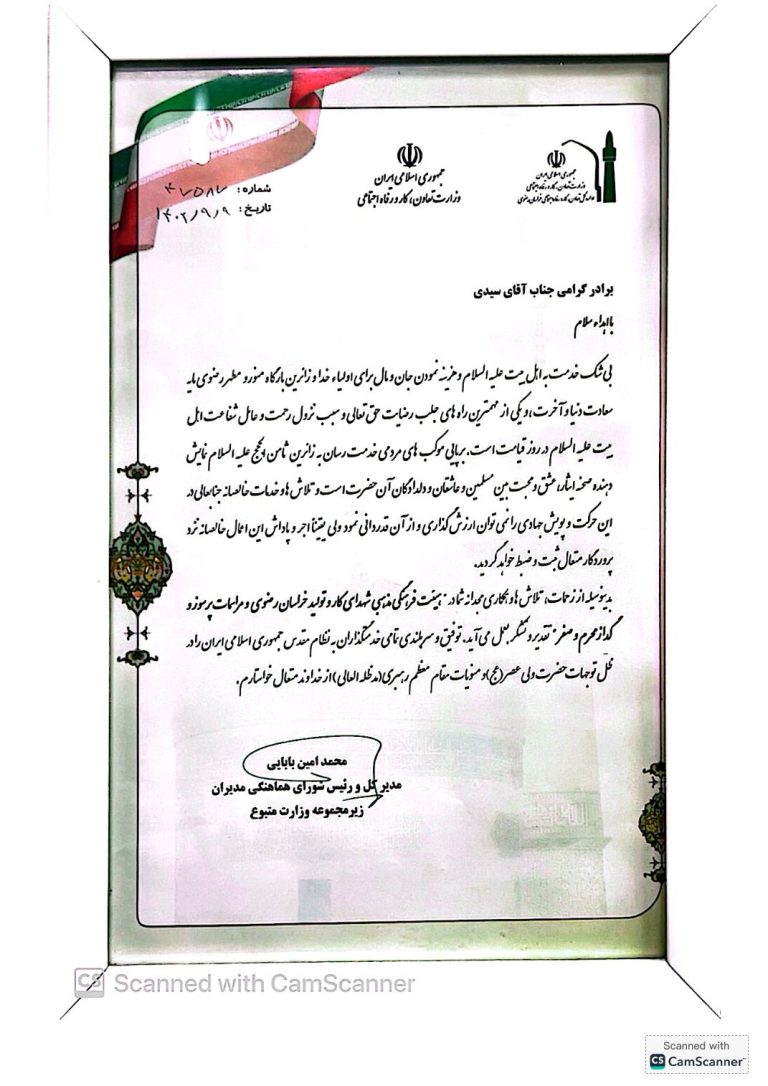 جمهوری اسلامی ایران
وزارت تعاون، کار و رفاه اجتماعی
جمهوری اسلامی ایران
وزارت تعاون، کار و رفاه اجتماعی
اداره کل تعاون، کار و رفاه اجتماعی خراسان رضوی
شماره: ۴۷۵۸۷
تاریخ: ۱۴۰۲/۹/۹
برادر گرامی جناب آقای سیدی
با اهداء سلام
بی شک خدمت به اهل بیت علیه السلام و هزینه نمودن جان و مال برای اولیاء خدا و زائرین بارگاه منور و مطهر رضوی مایه
سعادت دنیا و آخرت، و یکی از مهمترین راه های جلب رضایت حق تعالی و سبب نزول رحمت و عامل شفاعت اهل
بیت علیه السلام در روز قیامت است. برپایی موکب های مردمی خدمت رسان به زائرین ثامن الحجج علیه السلام نمایش
دهنده صحنه ایثار، عشق و محبت بین مسلمین و عاشقان و دلدادگان آن حضرت است و تلاش ها و خدمات خالصانه جنابعالی در
این حرکت و پویش جهادی را نمی توان ارزش گذاری و از آن قدردانی نمود ولی یقیناً اجر و پاداش این اعمال خالصانه نزد
پروردگار متعال ثبت و ضبط خواهد گردید.
بدینوسیله از زحمات، تلاش ها و همکاری مجدانه شما در "هیئت فرهنگی مذهبی شهدای کار و تولید خراسان رضوی و مراسمات پرسوز و
گداز محرم و صفر" تقدیر و تشکر بعمل می آید. توفیق و سربلندی تمامی خدمتگذاران به نظام مقدس جمهوری اسلامی ایران را در
ظل توجهات حضرت ولی عصر (عج) و منویات مقام معظم رهبری (مدظله العالی) از خداوند متعال خواستارم.
محمد امین بابایی
مدیر کل و رئیس شورای هماهنگی مدیران
زیرمجموعه وزارت متبوع
CS Scanned with CamScanner
Scanned with
CS CamScanner